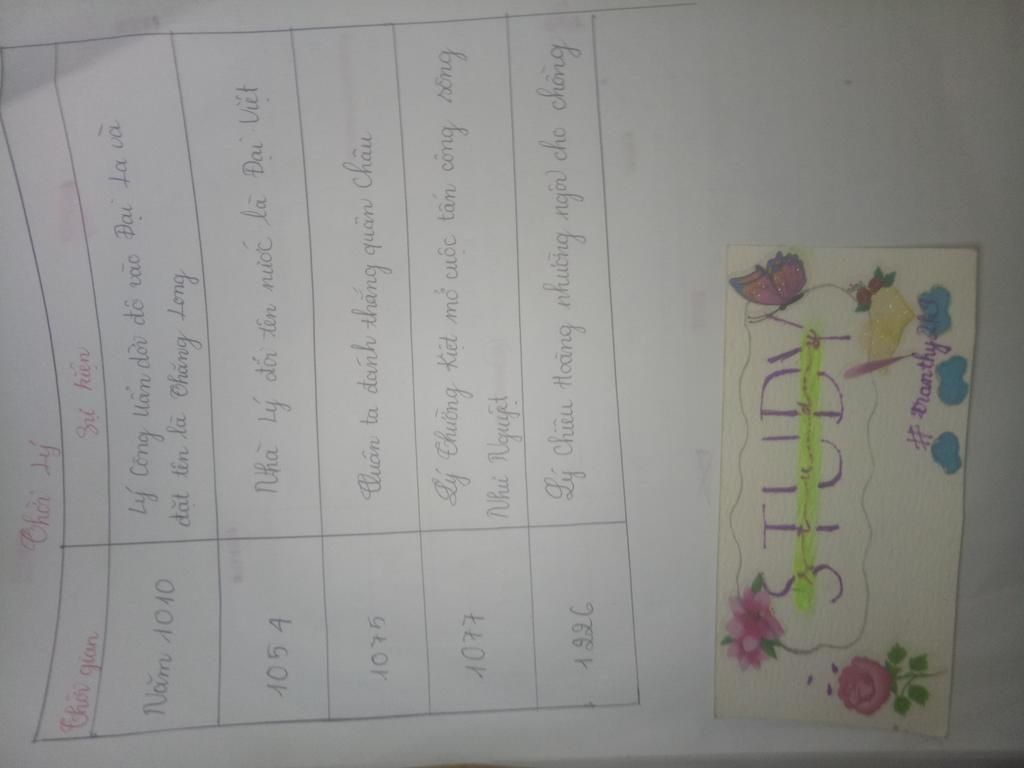 Thời Lý
Thời gian
Sự kiện
Năm 1010
Lý Công Uẩn dời đô vào Đại La và
đặt tên là Thăng Long
1054
Nhà Lý đổi tên nước là Đại Việt
1075
Quân ta đánh thắng quân Châu
1077
Lý Thường Kiệt mở cuộc tấn công sông
Như Nguyệt
1226
Lý Chiêu Hoàng nhường ngôi cho chồng
STUDY